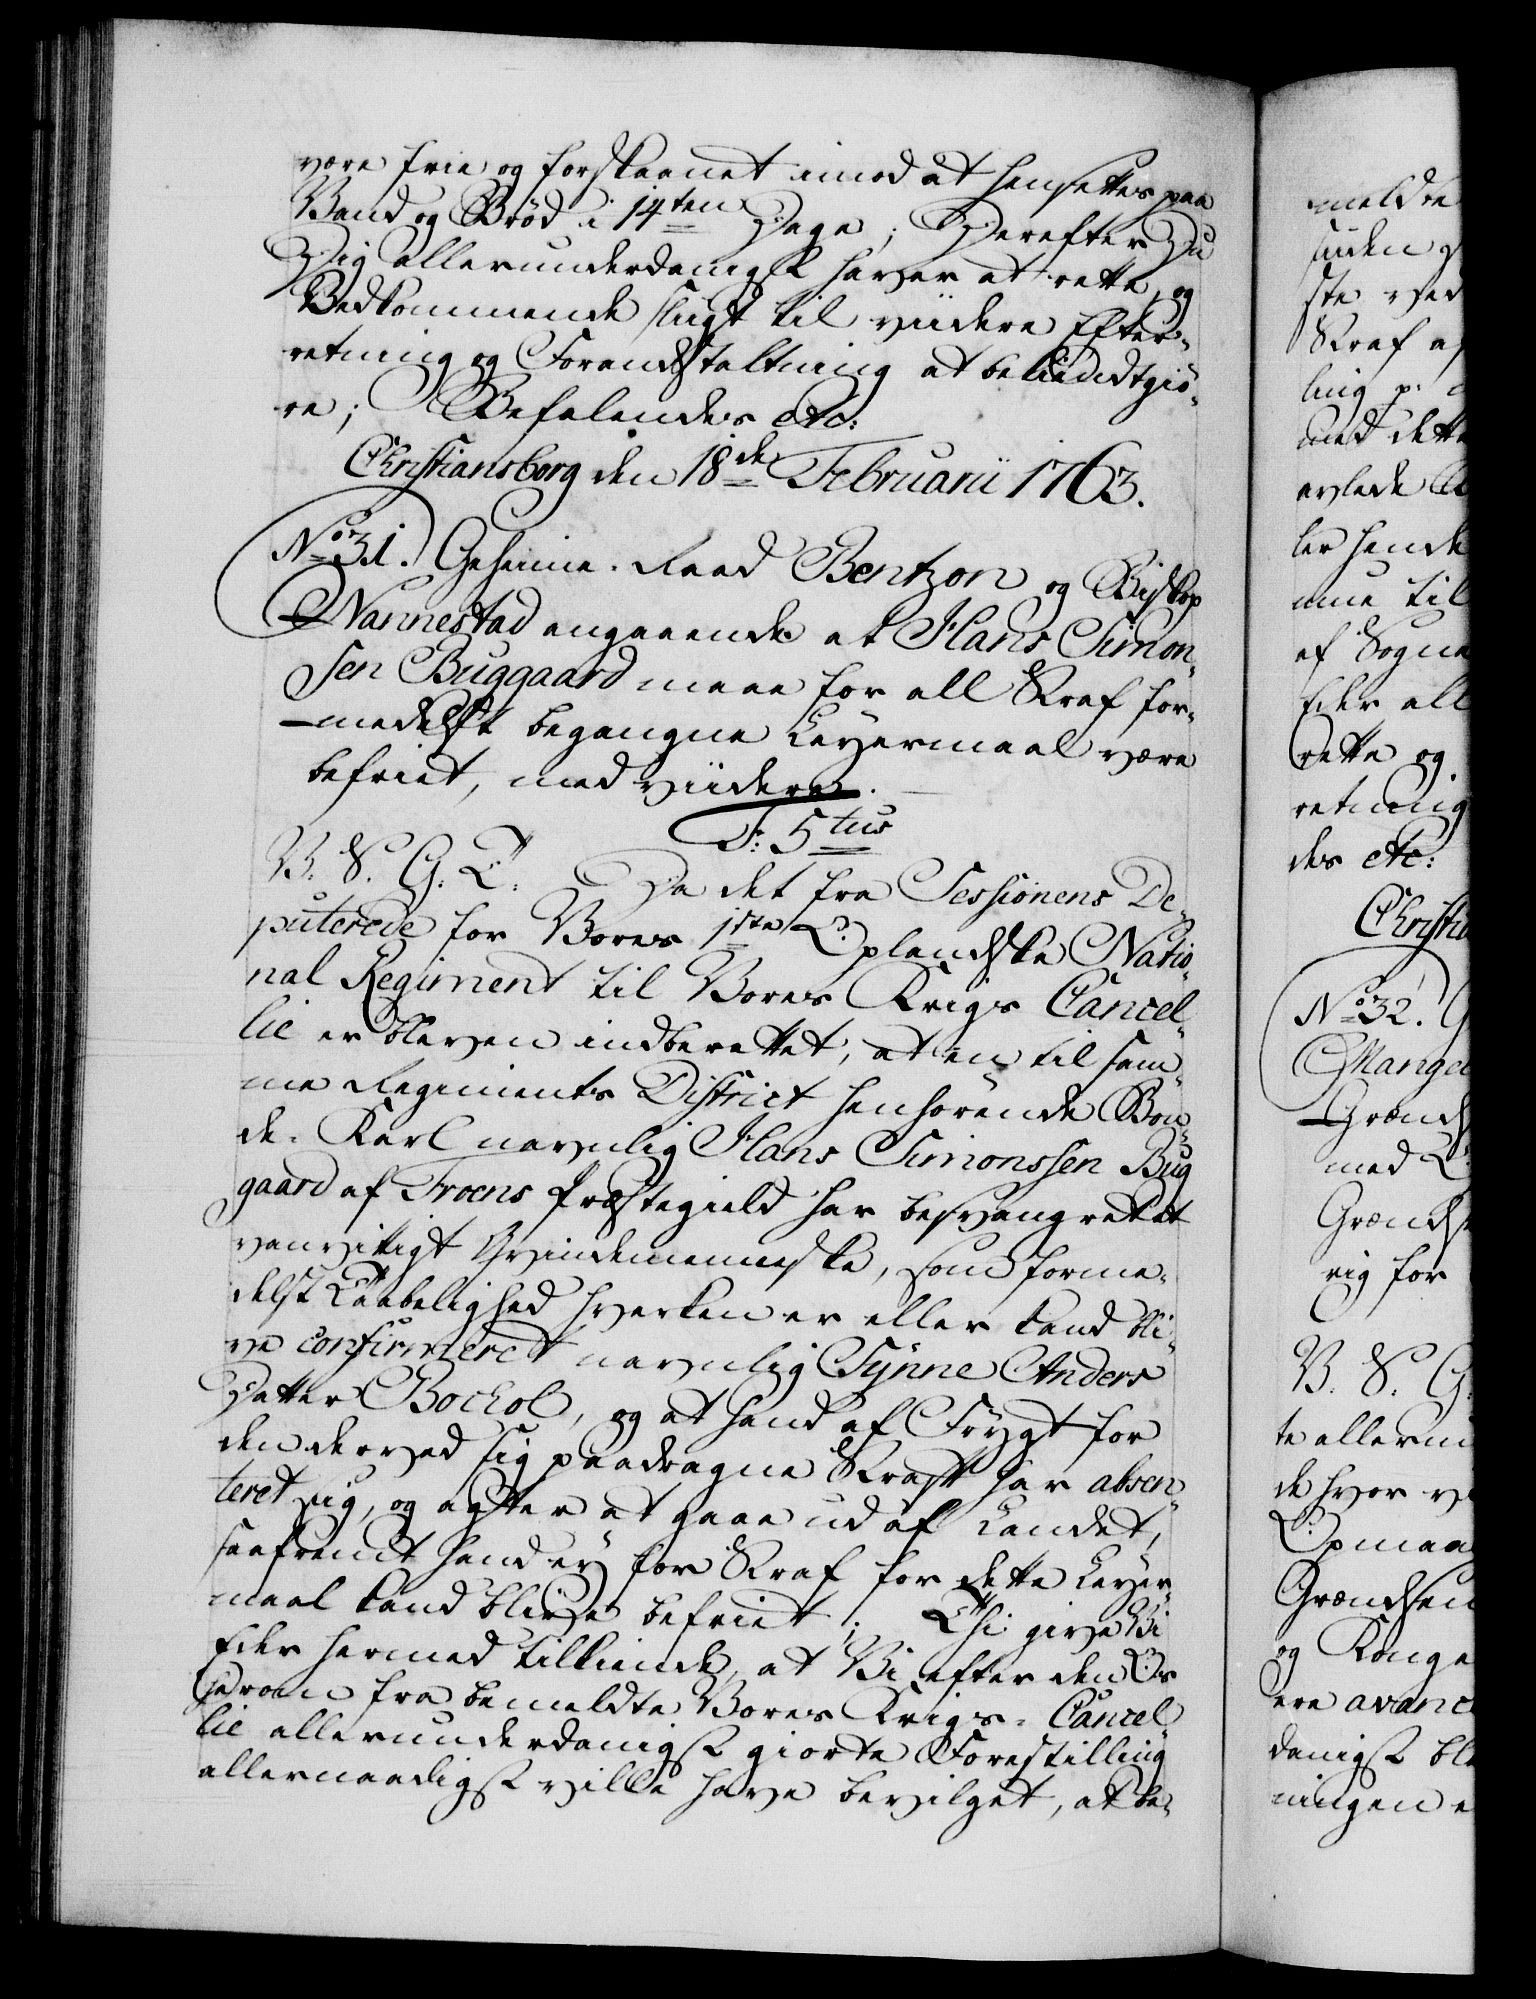 være frie og forskaanet imod at hensettes paa
Vand og Brød i 14ten Dage; Derefter Du
Dig allerunderdanigst haver at rette, og
Vedkommende sligt til viidere Efter-
retning og Foranstaltning at bekiendtgiø-
re; Befalendes etc:
Christiansborg den 18de Februarii 1763.
No 31. Geheime-Raad Bentzon og Biskop
Nannestad angaaende at Hans Simon-
sen Buggaard maae for all Straf for-
medelst begangne Leyermaal være
befriet, med viidere.
F: 5tus
V. S. G. T. Da det fra Sessionens De-
puterede for Vores 1ste Oplandske Natio-
nal Regiment til Vores Krigs Cancel-
lie er bleven indberettet, at en til sam-
me Regiments District henhørende Bon-
de-Karl navnlig Hans Simonssen Bug
gaard af Froens Præstegield har besvangret et
vanvittigt Qvindemenneske, som forme-
delst Taabelighed hverken er eller kand bli-
ve confirmeret navnlig Synne Anders
Datter Bochol, og at hand af Frygt for
den derved sig paadragne Straff har absen-
teret sig, og agter at gaae ud af Landet,
saafremt hand ey for Straf for dette Leyer-
maal kand blive befriet; Thi give Vi
Eder hermed tilkiende, at Vi efter den Os
herom fra bemeldte Vores Krigs-Cancel-
lie allerunderdanigst giorte Forestilling
allernaadigst ville have bevilget, at be-
meldte
suden
ste ved
Straf
ling p:
med dette
avlede
ler hende
nue til
af Sogne
Eder all
rette og
retning
des etc:
No 32.
Grænds
med
Grændse
rig for
V. S. G.
te allerun
de hvor
Opmaa
Grændsen
og Konge
ere avance
danigst ble
ningen